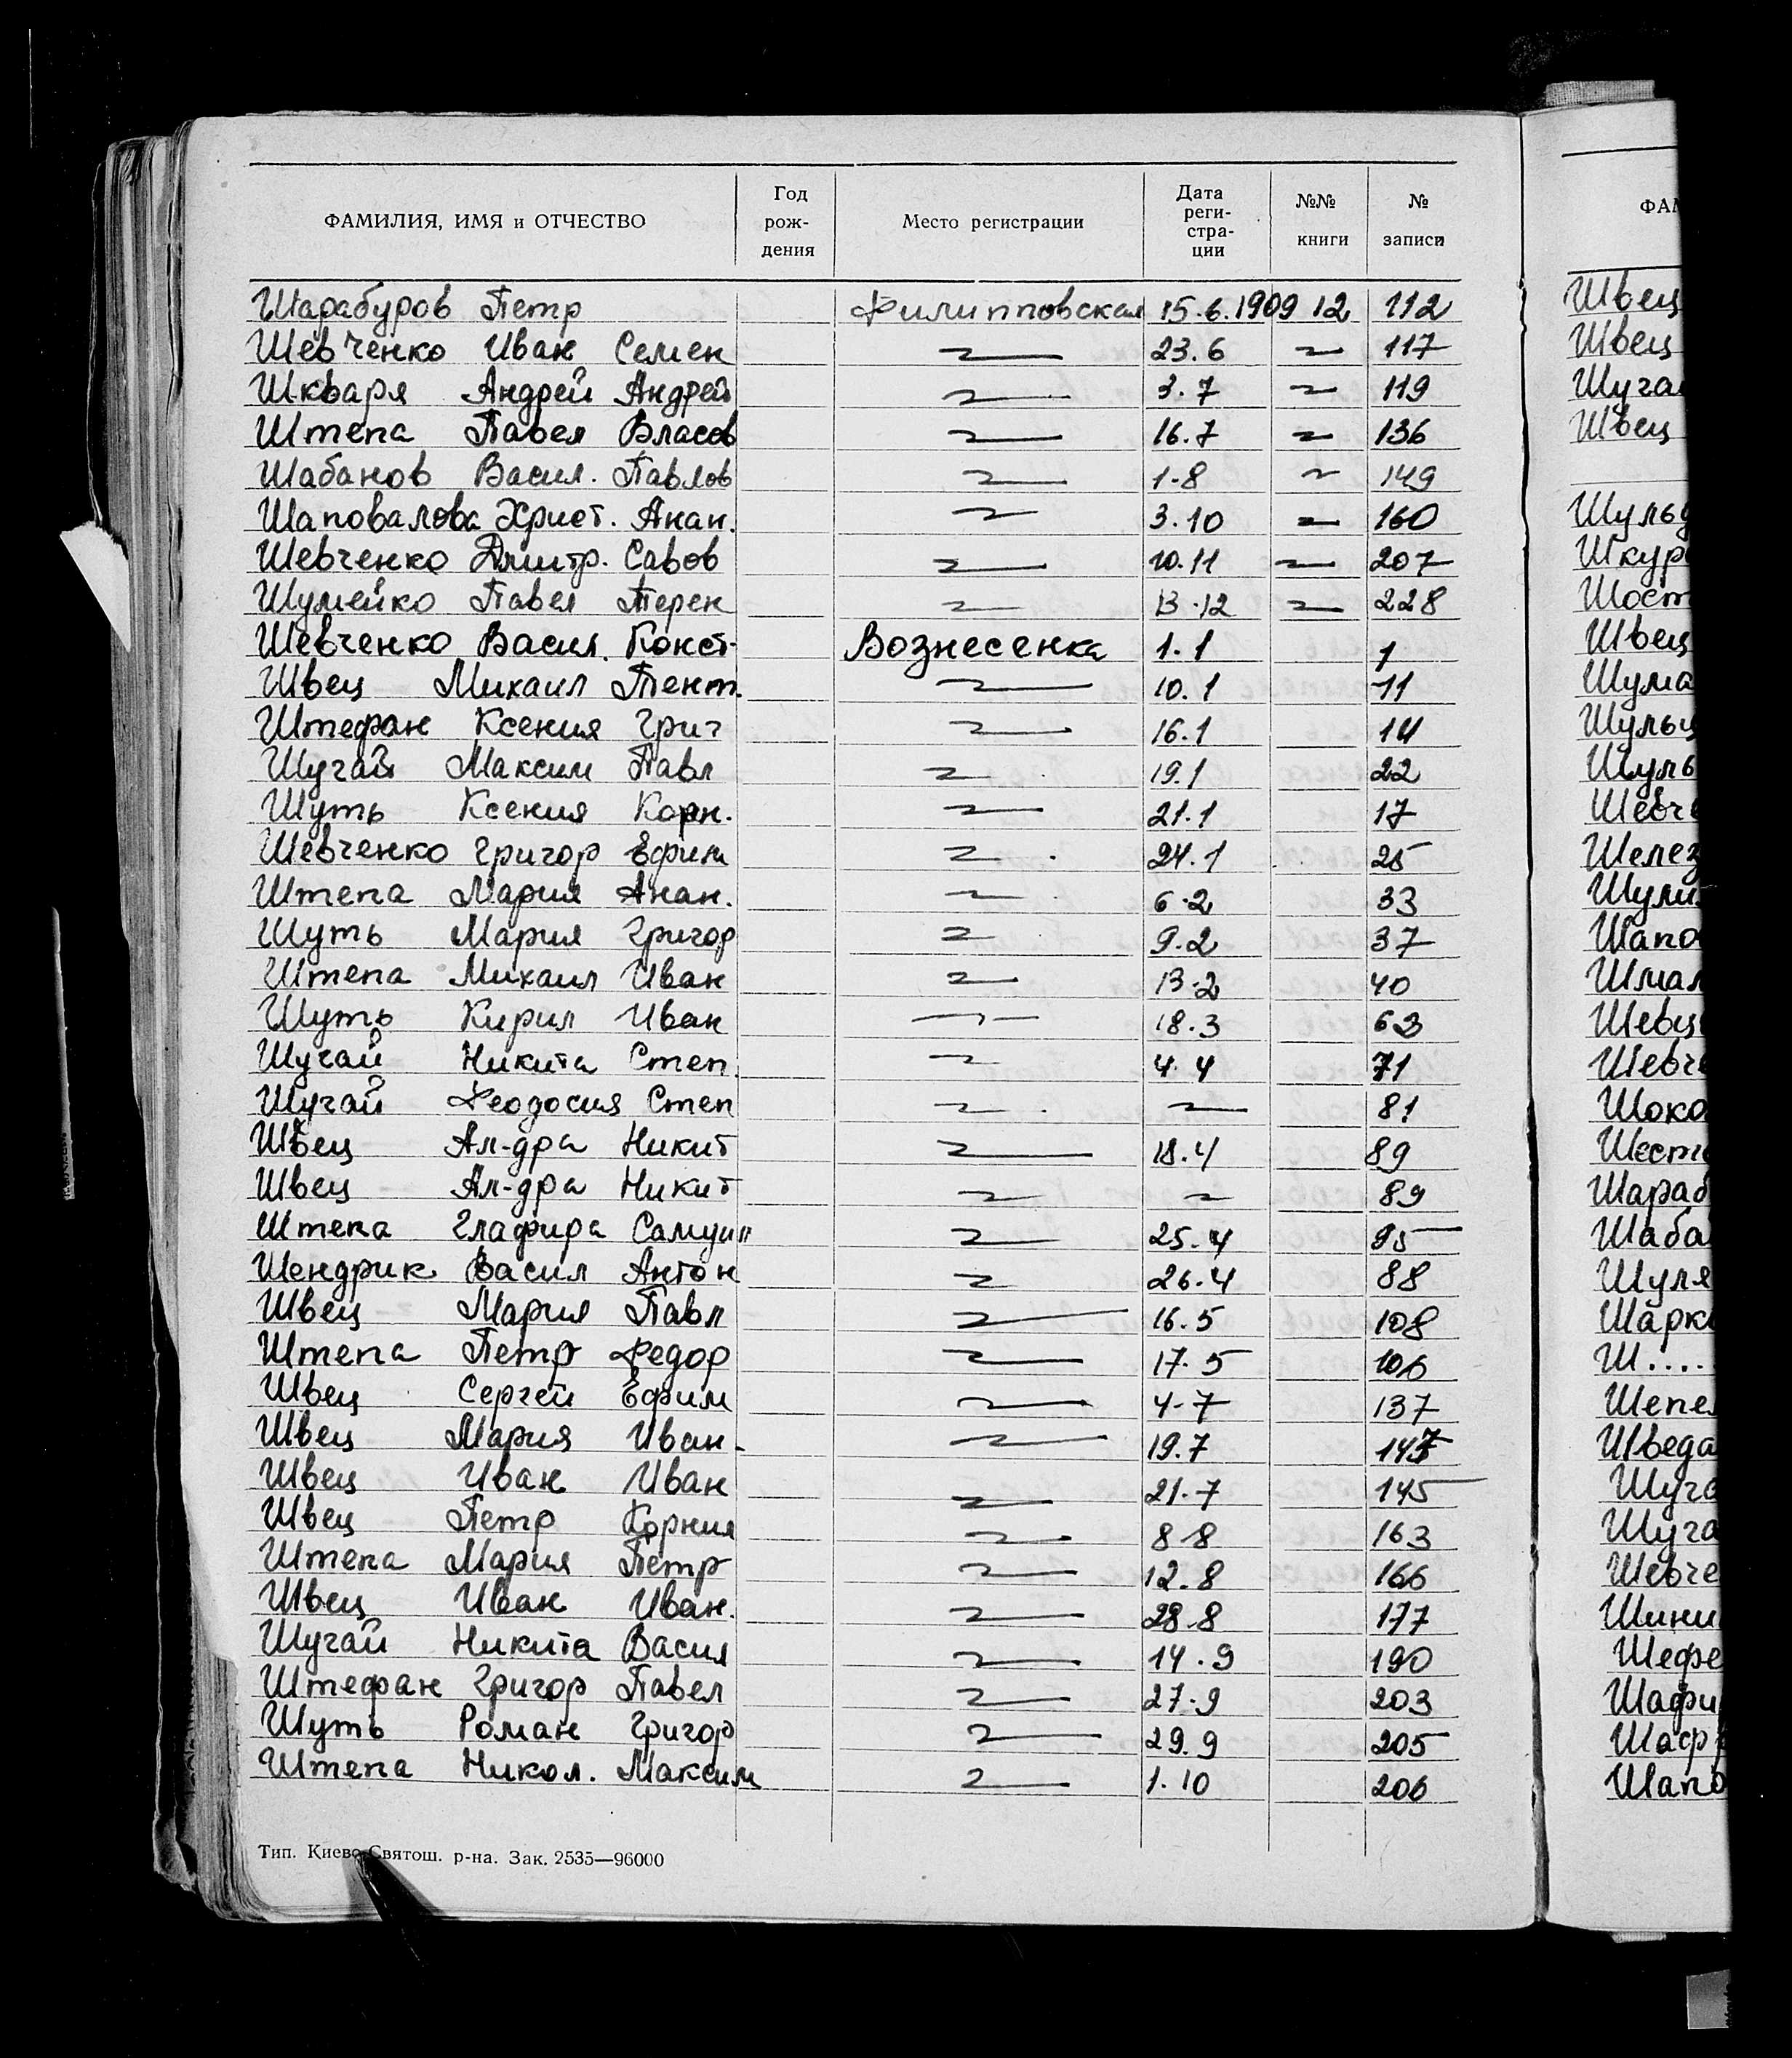 ФАМИЛИЯ, ИМЯ и ОТЧЕСТВО Год рож- дения Место регистрации Дата реги- стра- ции №№ книги № записи
Шарабуров Петр Филипповская 15.6.1909 12 112
Шевченко Иван Семен 23.6 117
Шкваря Андрей Андрей 3.7 119
Штепа Павел Власов 16.7 136
Шабанов Васил. Павлов 1-8 149
Шаповалова Христ. Анан. 3.10 160
Шевченко Дмитр. Савов 10.11 207
Шумейко Павел Терен 13.12 228
Шевченко Васил. Конст- Вознесенка 1.1 1
Швец Михаил Тент. 10.1 11
Штефан Ксения Григ 16.1 14
Шугай Максим Павл 19.1 22
Шуть Ксения Корн. 21.1 17
Шевченко Григор Ефим 24.1 25
Штепа Мария Анан. 6.2 33
Шуть Мария Григор 9.2 37
Штепа Михаил Иван 13.2 40
Шуть Кирил Иван 18.3 63
Шугай Никита Степ. 4.4 71
Шугай Феодосия Степ 81
Швец Ал-дра Никит 18.4 89
Швец Ал-дра Никит 89
Штепа Глафира Самуил 25.4 95
Шендрик Васил Антон 26.4 88
Швец Мария Павл 16.5 108
Штепа Петр Федор 17.5 106
Швец Сергей Ефим 4-7 137
Швец Мария Иван- 19.7 147
Швец Иван Иван 21.7 145
Швец Петр Корния 8.8 163
Штепа Мария Петр 12.8 166
Швец Иван Иван. 28.8 177
Шугай Никита Васил 14.9 190
Штефан Григор Павел 27.9 203
Шуть Роман Григор 29.9 205
Штепа Никол. Максим 1.10 206
Тип. Киево-Святош. р-на. Зак. 2535—96000
ФАМ
Швец
Швец
Шуга
Швец
Шульд
Шкур
Шост
Швец
Шума
Шульц
Шуль
Шевче
Шелез
Шули
Шапо
Шмал
Шевц
Шевче
Шоко
Шест
Шараб
Шаба
Шуля
Шарк
Ш....
Шепе
Шведа
Шуга
Шуга
Шевче
Шини
Шефе
Шафи
Шаф
Шапо